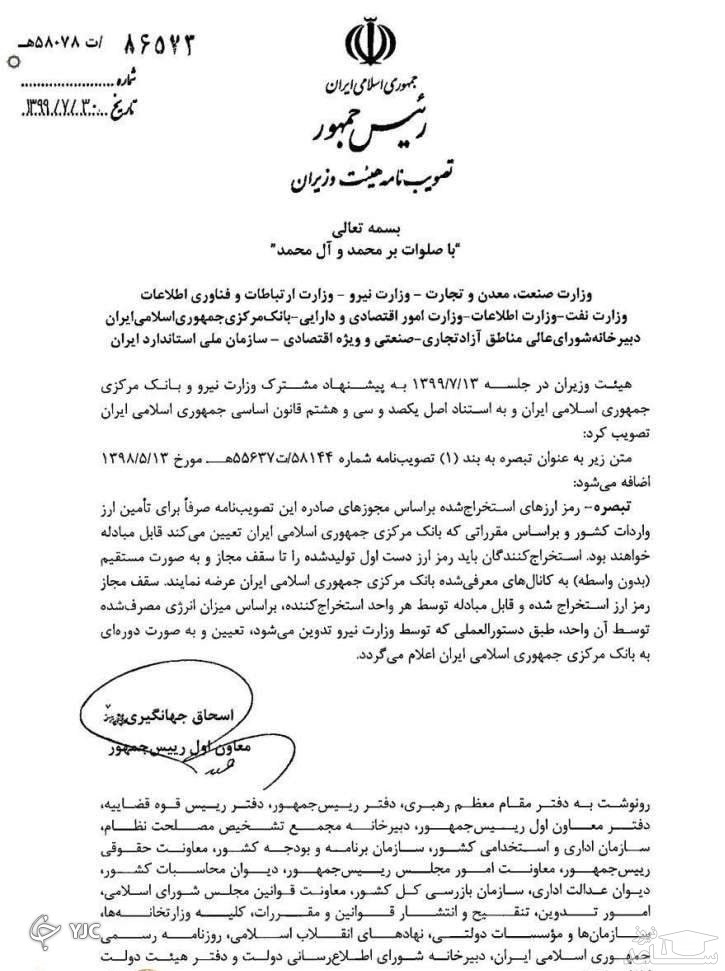 ۸۶۵۷۳ /ت ۵۸۰۷۸هـ
شماره
تاریخ ۱۳۹۹/۷/۳۰
جمهوری اسلامی ایران
رئیس جمهور
تصویب نامه هیئت وزیران
بسمه تعالی
"با صلوات بر محمد و آل محمد"
وزارت صنعت، معدن و تجارت – وزارت نیرو – وزارت ارتباطات و فناوری اطلاعات
وزارت نفت–وزارت اطلاعات–وزارت امور اقتصادی و دارایی–بانک مرکزی جمهوری اسلامی ایران
دبیرخانه شورای عالی مناطق آزاد تجاری–صنعتی و ویژه اقتصادی – سازمان ملی استاندارد ایران
هیئت وزیران در جلسه ۱۳۹۹/۷/۱۳ به پیشنهاد مشترک وزارت نیرو و بانک مرکزی
جمهوری اسلامی ایران و به استناد اصل یکصد و سی و هشتم قانون اساسی جمهوری اسلامی ایران
تصویب کرد:
متن زیر به عنوان تبصره به بند (۱) تصویب‌نامه شماره ۵۸۱۴۴/ت۵۵۶۳۷هـ مورخ ۱۳۹۸/۵/۱۳
اضافه می‌شود:
تبصره– رمز ارزهای استخراج‌شده براساس مجوزهای صادره این تصویب‌نامه صرفاً برای تأمین ارز
واردات کشور و براساس مقرراتی که بانک مرکزی جمهوری اسلامی ایران تعیین می‌کند قابل مبادله
خواهند بود. استخراج‌کنندگان باید رمز ارز دست اول تولیدشده را تا سقف مجاز و به صورت مستقیم
(بدون واسطه) به کانال‌های معرفی‌شده بانک مرکزی جمهوری اسلامی ایران عرضه نمایند. سقف مجاز
رمز ارز استخراج شده و قابل مبادله توسط هر واحد استخراج‌کننده، براساس میزان انرژی مصرف‌شده
توسط آن واحد، طبق دستورالعملی که توسط وزارت نیرو تدوین می‌شود، تعیین و به صورت دوره‌ای
به بانک مرکزی جمهوری اسلامی ایران اعلام می‌گردد.
اسحاق جهانگیری
معاون اول رییس‌جمهور
رونوشت به دفتر مقام معظم رهبری، دفتر رییس‌جمهور، دفتر رییس قوه قضاییه،
دفتر معاون اول رییس‌جمهور، دبیرخانه مجمع تشخیص مصلحت نظام،
سازمان اداری و استخدامی کشور، سازمان برنامه و بودجه کشور، معاونت حقوقی
رییس‌جمهور، معاونت امور مجلس رییس‌جمهور، دیوان محاسبات کشور،
دیوان عدالت اداری، سازمان بازرسی کل کشور، معاونت قوانین مجلس شورای اسلامی،
امور تدوین، تنقیح و انتشار قوانین و مقررات، کلیه وزارتخانه‌ها،
سازمان‌ها و مؤسسات دولتی، نهادهای انقلاب اسلامی، روزنامه رسمی
جمهوری اسلامی ایران، دبیرخانه شورای اطلاع‌رسانی دولت و دفتر هیئت دولت
YJC